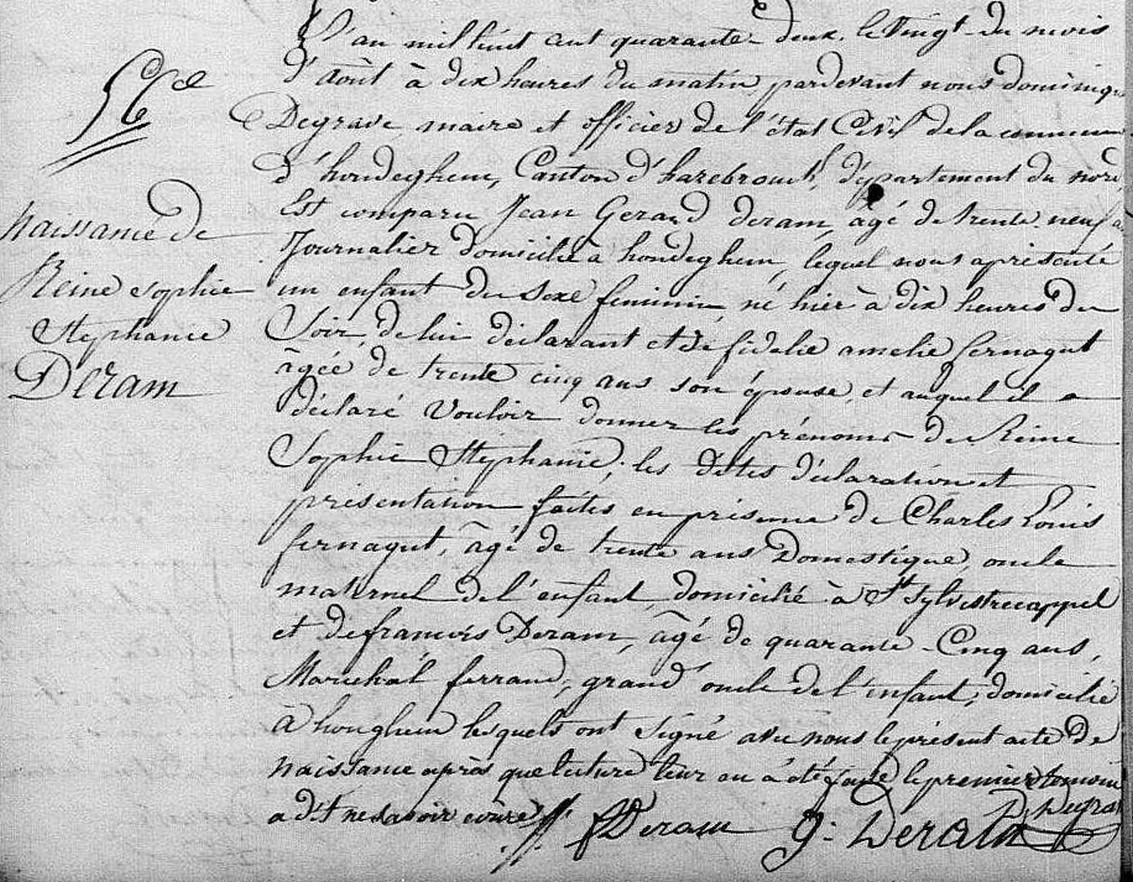 56e
Naissance de
Reine Sophie
Stéphanie
Deram
L'an mil huit cent quarante-deux, le vingt du mois
d'août à dix heures du matin, pardevant nous dominique
Degrave, maire et officier de l'état Civil de la commune
d'hondeghem, Canton d'hazebrouck, département du nord,
Est comparu Jean Gerard deram, âgé de trente neuf ans
Journalier domicilié à hondeghem, lequel nous a présenté
un enfant du sexe feminin, né hier à dix heures du
Soir, de lui déclarant et de fidelie amelie fernagut
âgée de trente cinq ans son épouse, et auquel il a
déclaré Vouloir donner les prénoms de Reine
Sophie Stéphanie; les dites déclaration et
présentation faites en présence de Charles Louis
fernagut, âgé de trente ans Domestique, oncle
maternel de l'enfant, domicilié à St Sylvestrecappel
et de francois Deram, âgé de quarante-Cinq ans,
Maréchal ferrand, grand oncle de l'enfant, domicilié
à honghem lesquels ont signé avec nous le présent acte de
naissance après que lecture leur en a été faite, le premier témoin
a dit ne savoir écrire
f Deram g: Deram D. Degrave